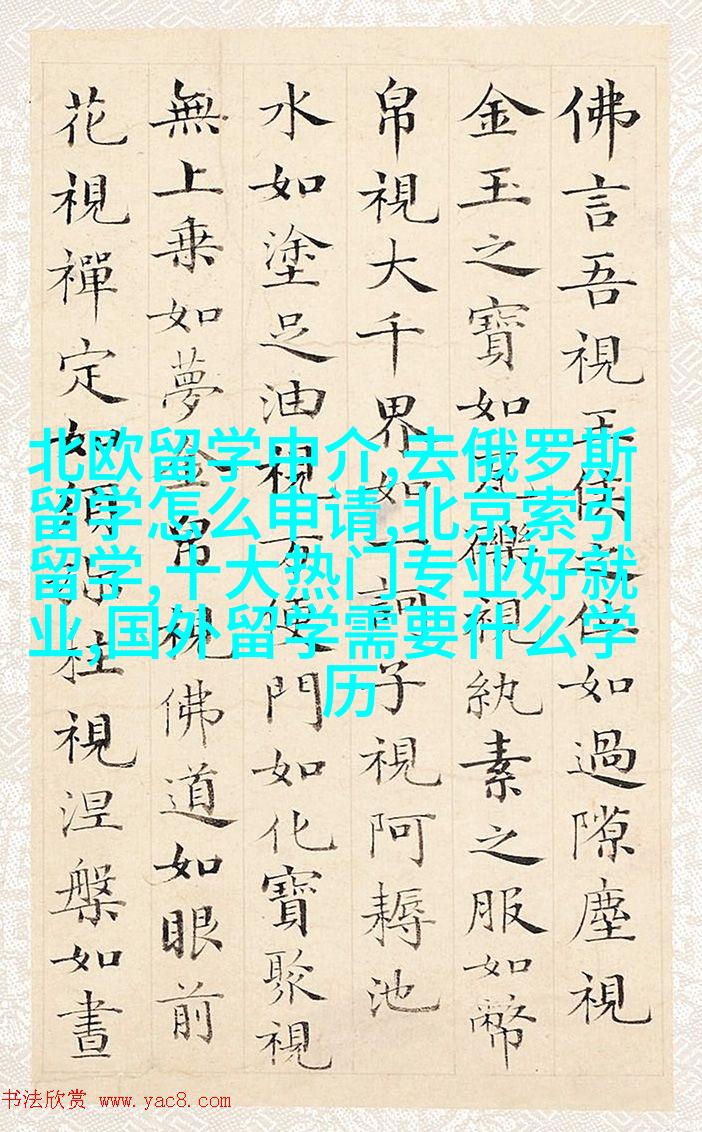 佛言吾視王侯之位如過隙塵視
金玉之寶如瓦礫視紈素之服如幣
帛視大千界如一訶子視阿耨池
水如塗足油視方便門如化寶聚視
無上乗如夢金帛視佛道如眼前
花視禪定如須弥柱視涅槃如晝
北欧留学中介,去俄罗斯
留学怎么申请,北京索引
留学,十大热门专业好就
业,国外留学需要什么学
历
书法欣赏 www.yac8.com